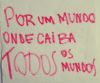 POR UM MUNDO
ONDE CAIBA
TODOS OS
MUNDOS